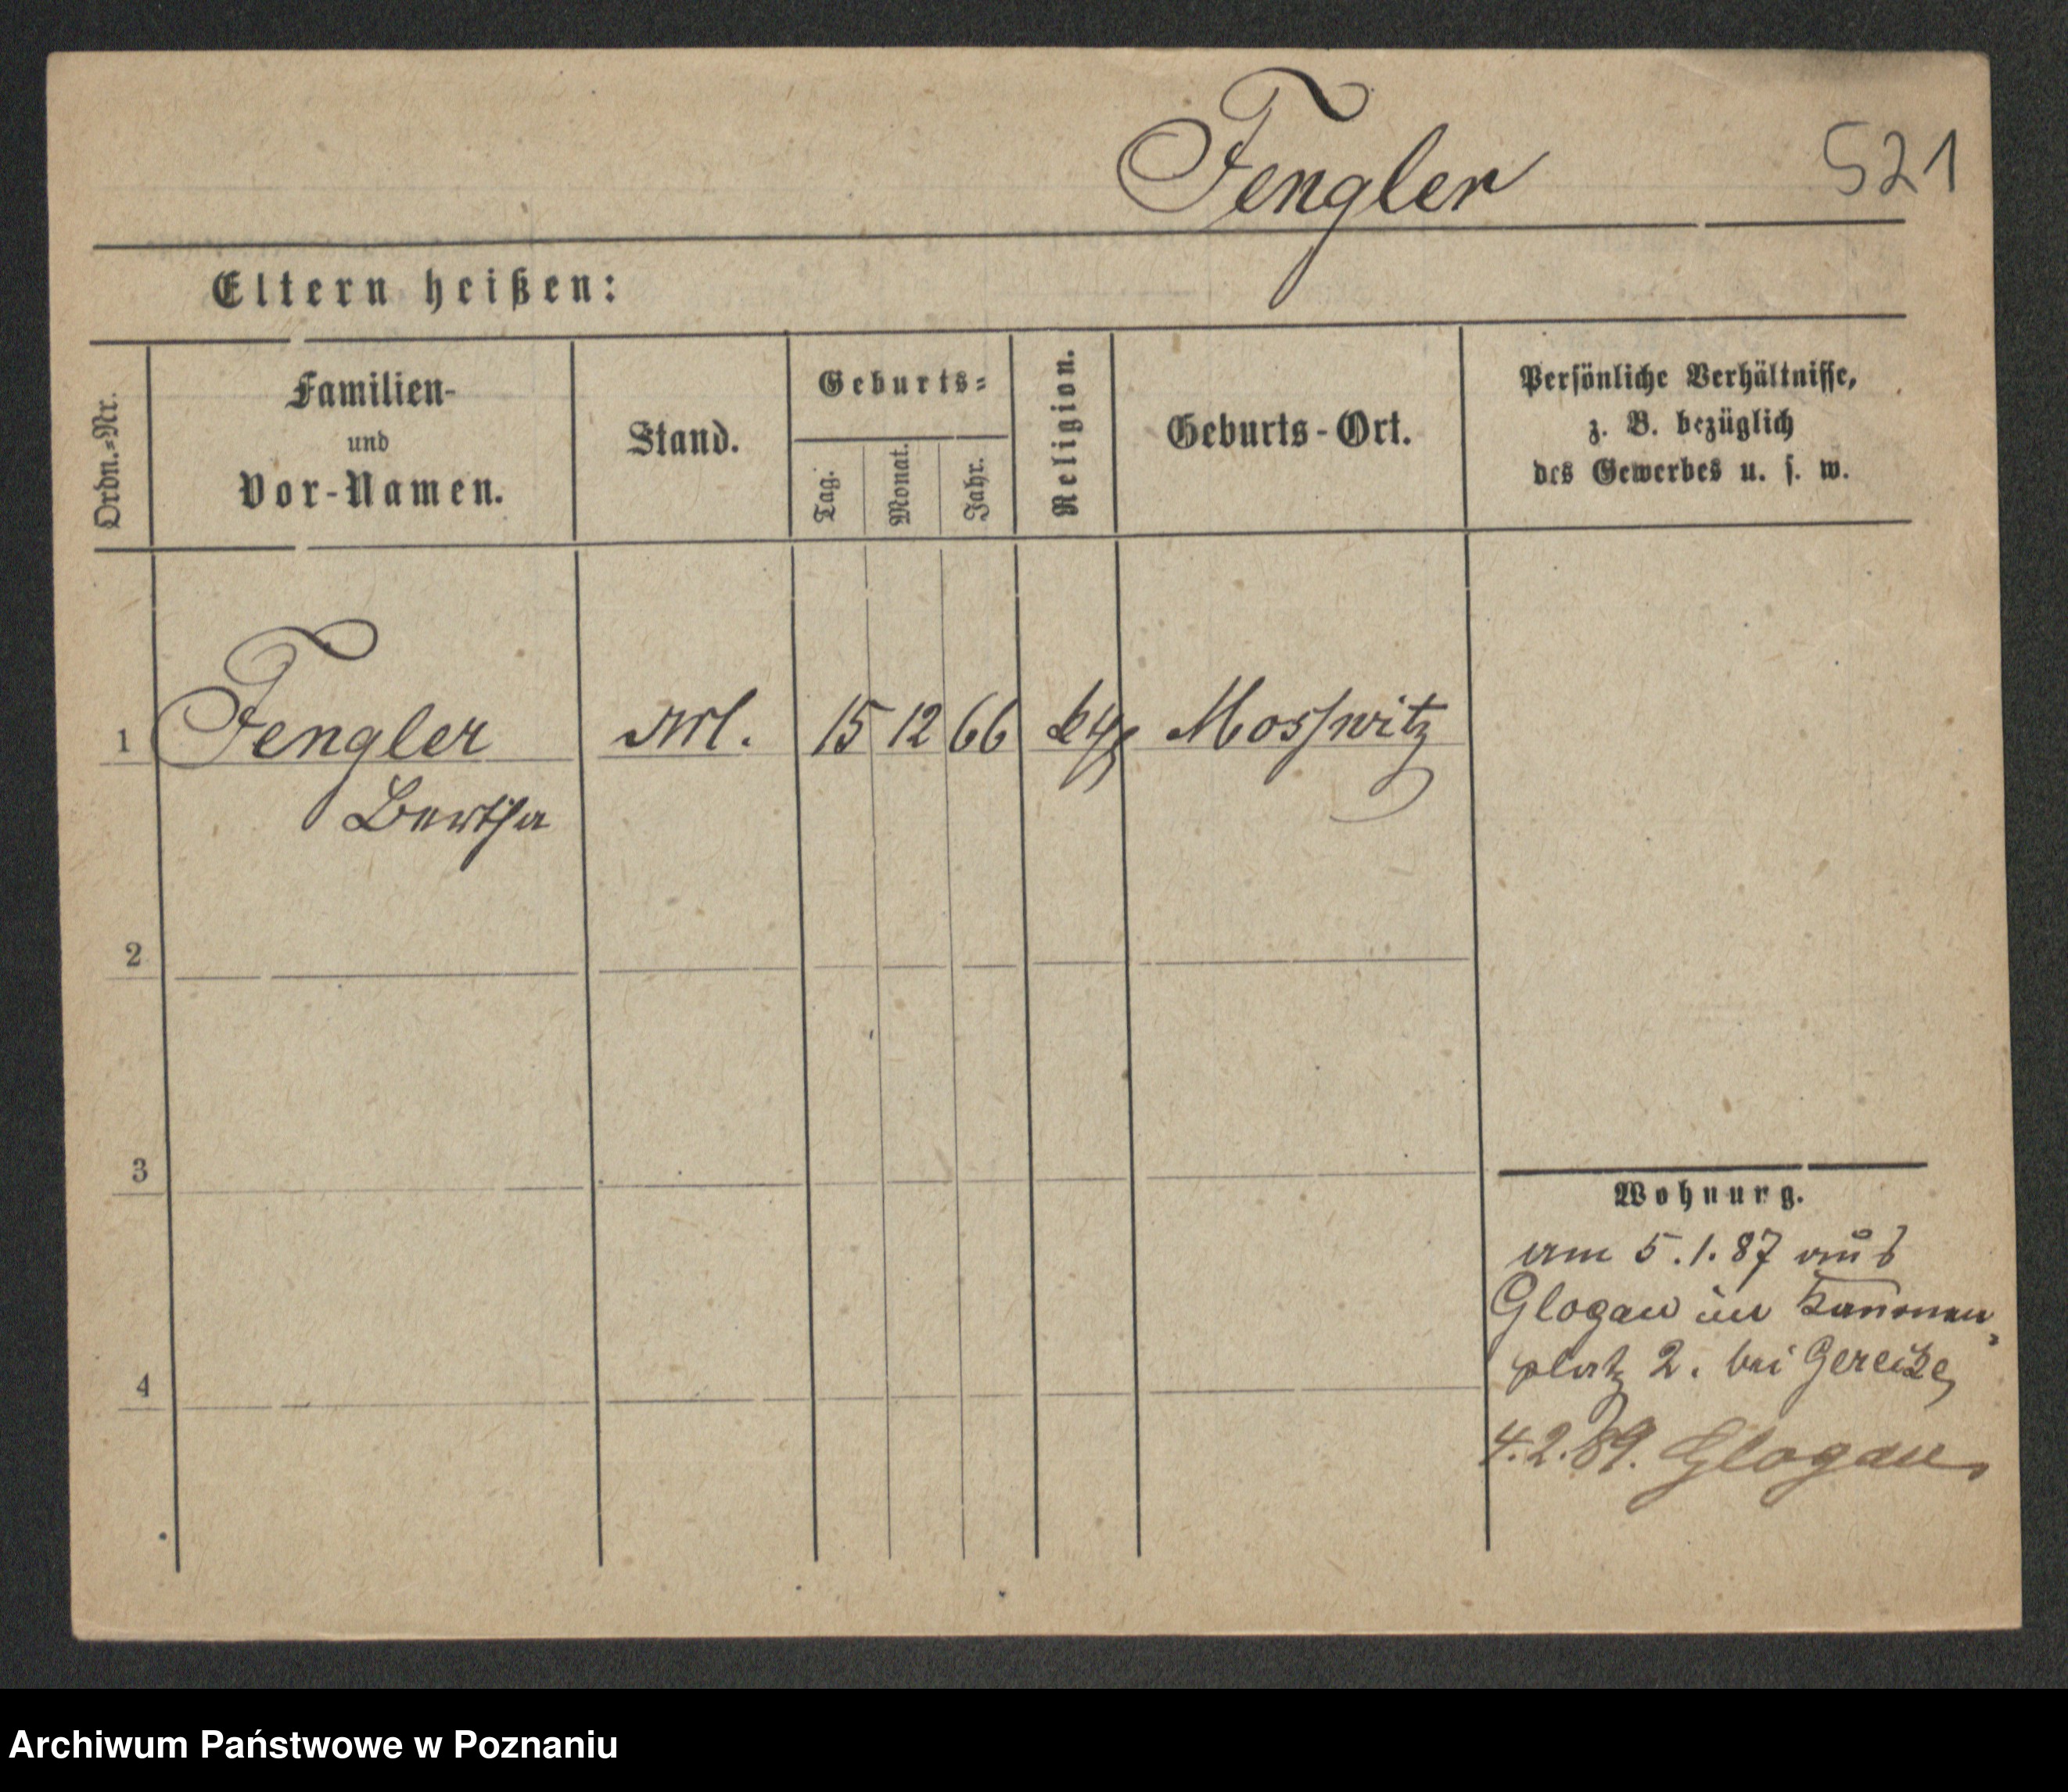 Fengler
521
Eltern heißen:
Ordn.=Nr.
Familien-
und
Vor-Namen.
Stand.
Geburts=
Tag.
Monat.
Jahr.
Religion.
Geburts-Ort.
Persönliche Verhältnisse,
z. B. bezüglich
des Gewerbes u. s. w.
1 Fengler 15 12 66 Mosswitz
Bertha
2
3
4
Wohnung.
am 5.1.87 aus
Glogau in Kanonen
platz 2. bei
4.2.89. Glogau
Archiwum Państwowe w Poznaniu